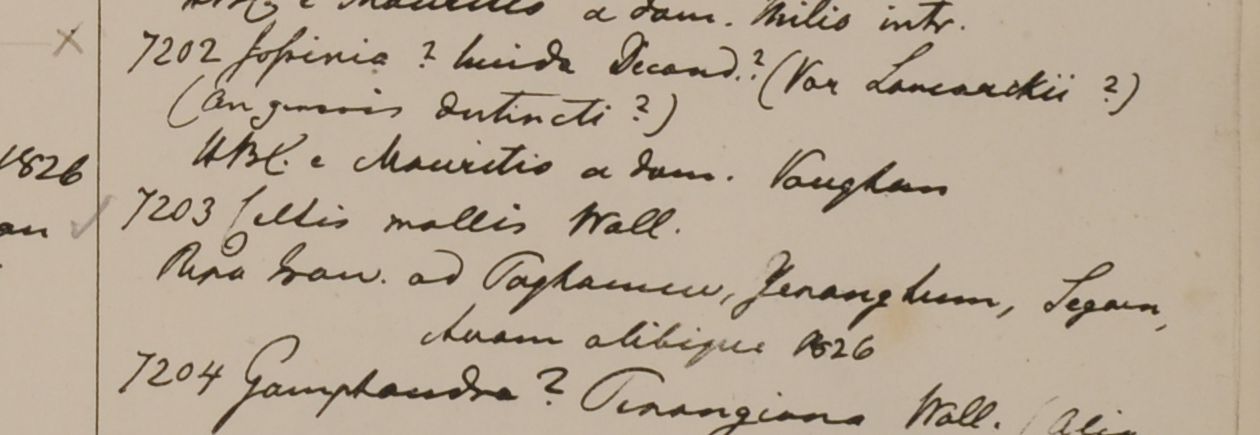 HBC e Mauritio a dom. Milio intr.
7202 Jossinia ? lucida Decand.? (Var Lamarckii ?)
(an generis distincti ?)
HBC. e Mauritio a dom. Vaughan
1826
7203 Celtis mollis Wall.
Ripa Iraw. ad Paghamew, Yenanghum, Segaen,
Avam alibique 1826
7204 Gomphandra ? Penangiana Wall. (Alia